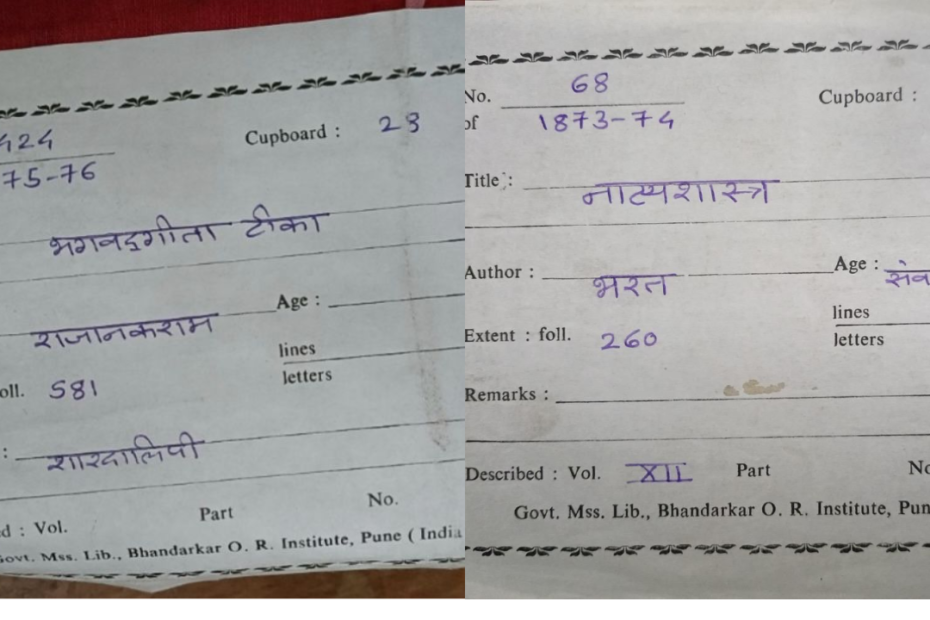 424
75-76
Cupboard : 23
भगवद्गीता टीका
राजानकराम
Age :
lines
letters
oll. 581
: शारदालिपी
d : Vol. Part No.
Govt. Mss. Lib., Bhandarkar O. R. Institute, Pune ( India
No. 68
of 1873-74
Cupboard :
Title : नाट्यशास्त्र
Author : भरत
Age : संव
Extent : foll. 260
lines
letters
Remarks :
Described : Vol. XII Part No
Govt. Mss. Lib., Bhandarkar O. R. Institute, Pun